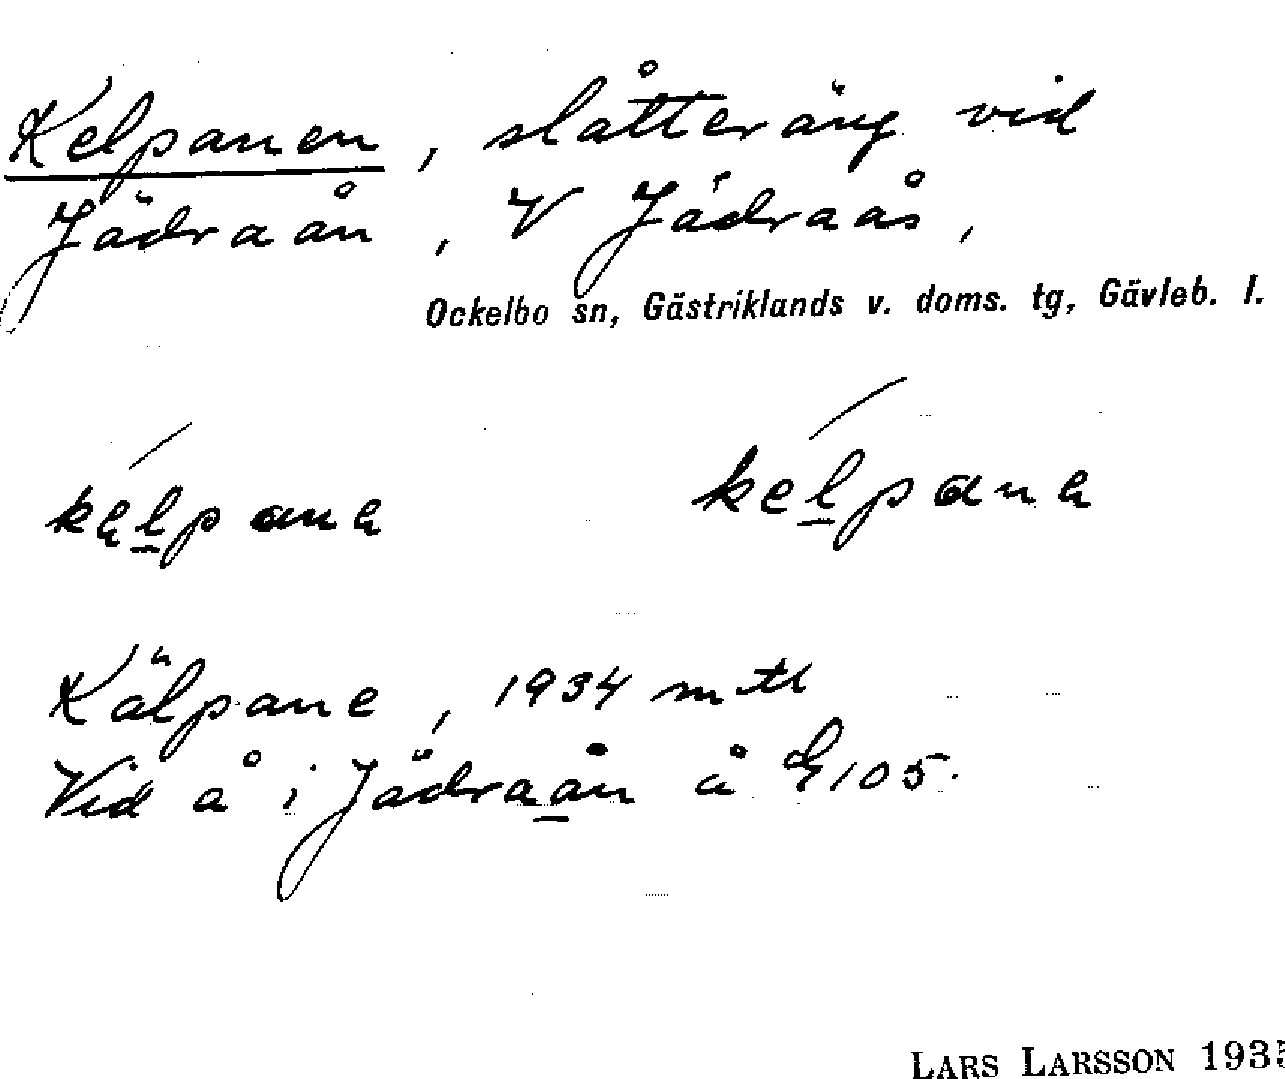 Kelpanen, slåtteräng vid
Jädraån, V Jädraås,
Ockelbo sn, Gästriklands v. doms. tg, Gävleb. l.
kęlpanę kelpanę
Kälpane, 1934 mtl
Vid å i Jädraån å E105.
LARS LARSSON 1935